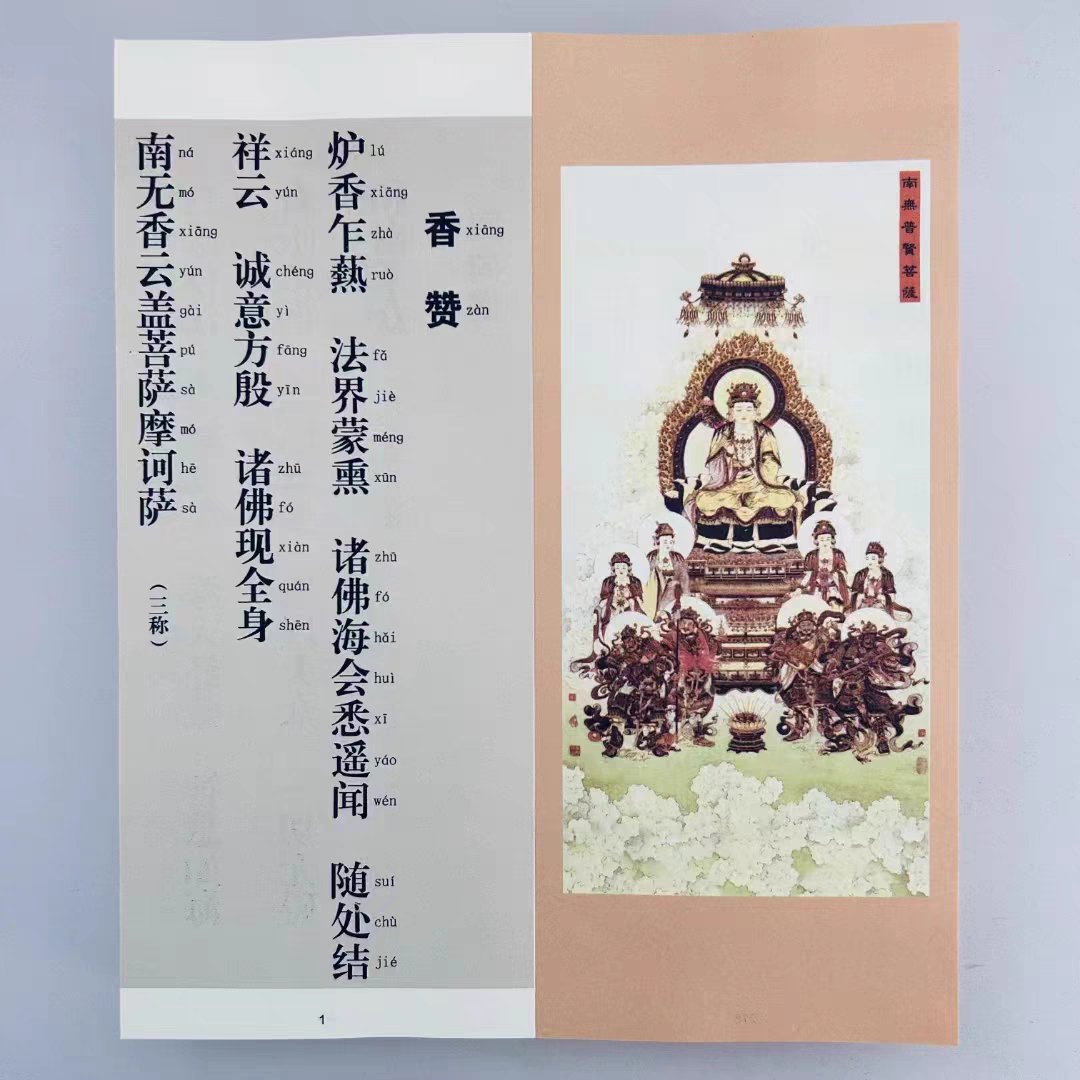 南無普賢菩薩
香赞
xiāng zàn
炉香乍爇 法界蒙熏 诸佛海会悉遥闻 随处结
lú xiāng zhà ruò fǎ jiè méng xūn zhū fó hǎi huì xī yáo wén suí chù jié
祥云 诚意方殷 诸佛现全身
xiáng yún chéng yì fāng yīn zhū fó xiàn quán shēn
南无香云盖菩萨摩诃萨 （三称）
ná mó xiāng yún gài pú sà mó hē sà
1